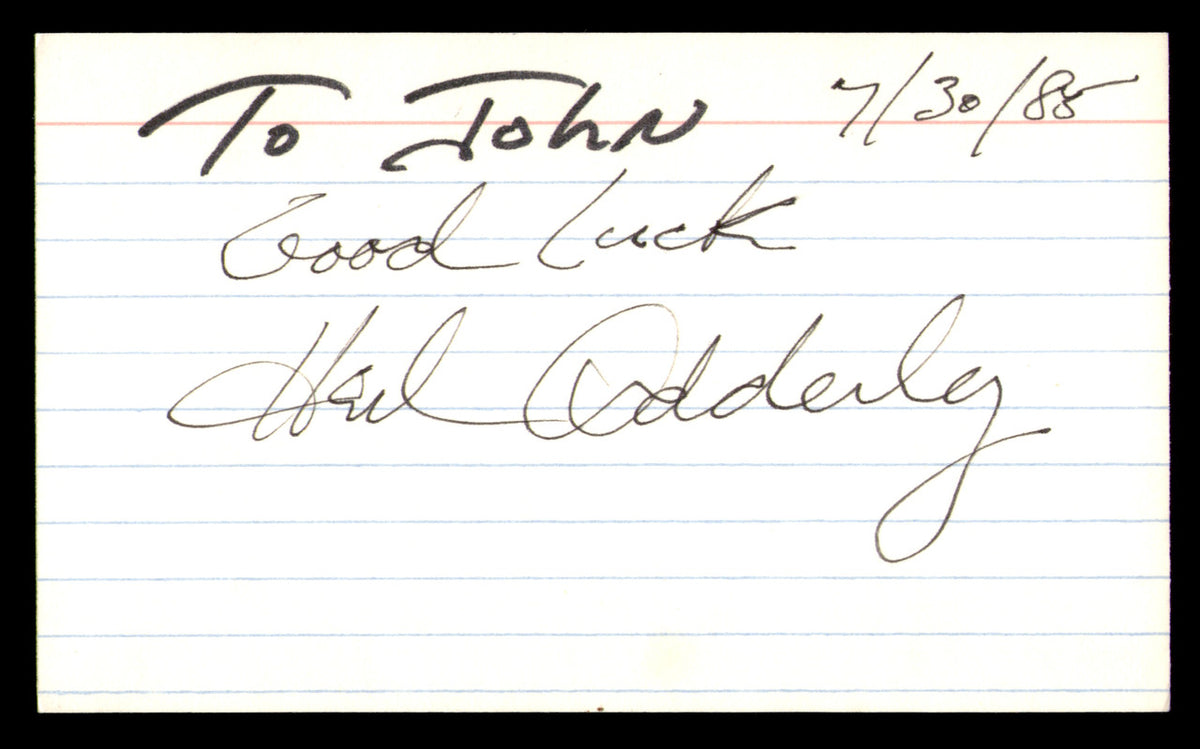 To John 7/30/85
Good Luck
Herb Adderly